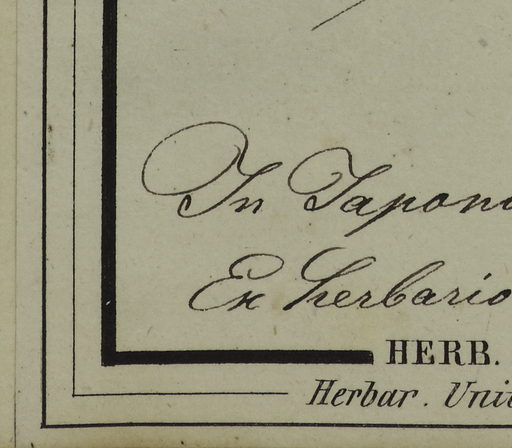 In Japoni
Ex herbario
HERB.
Herbar. Univ